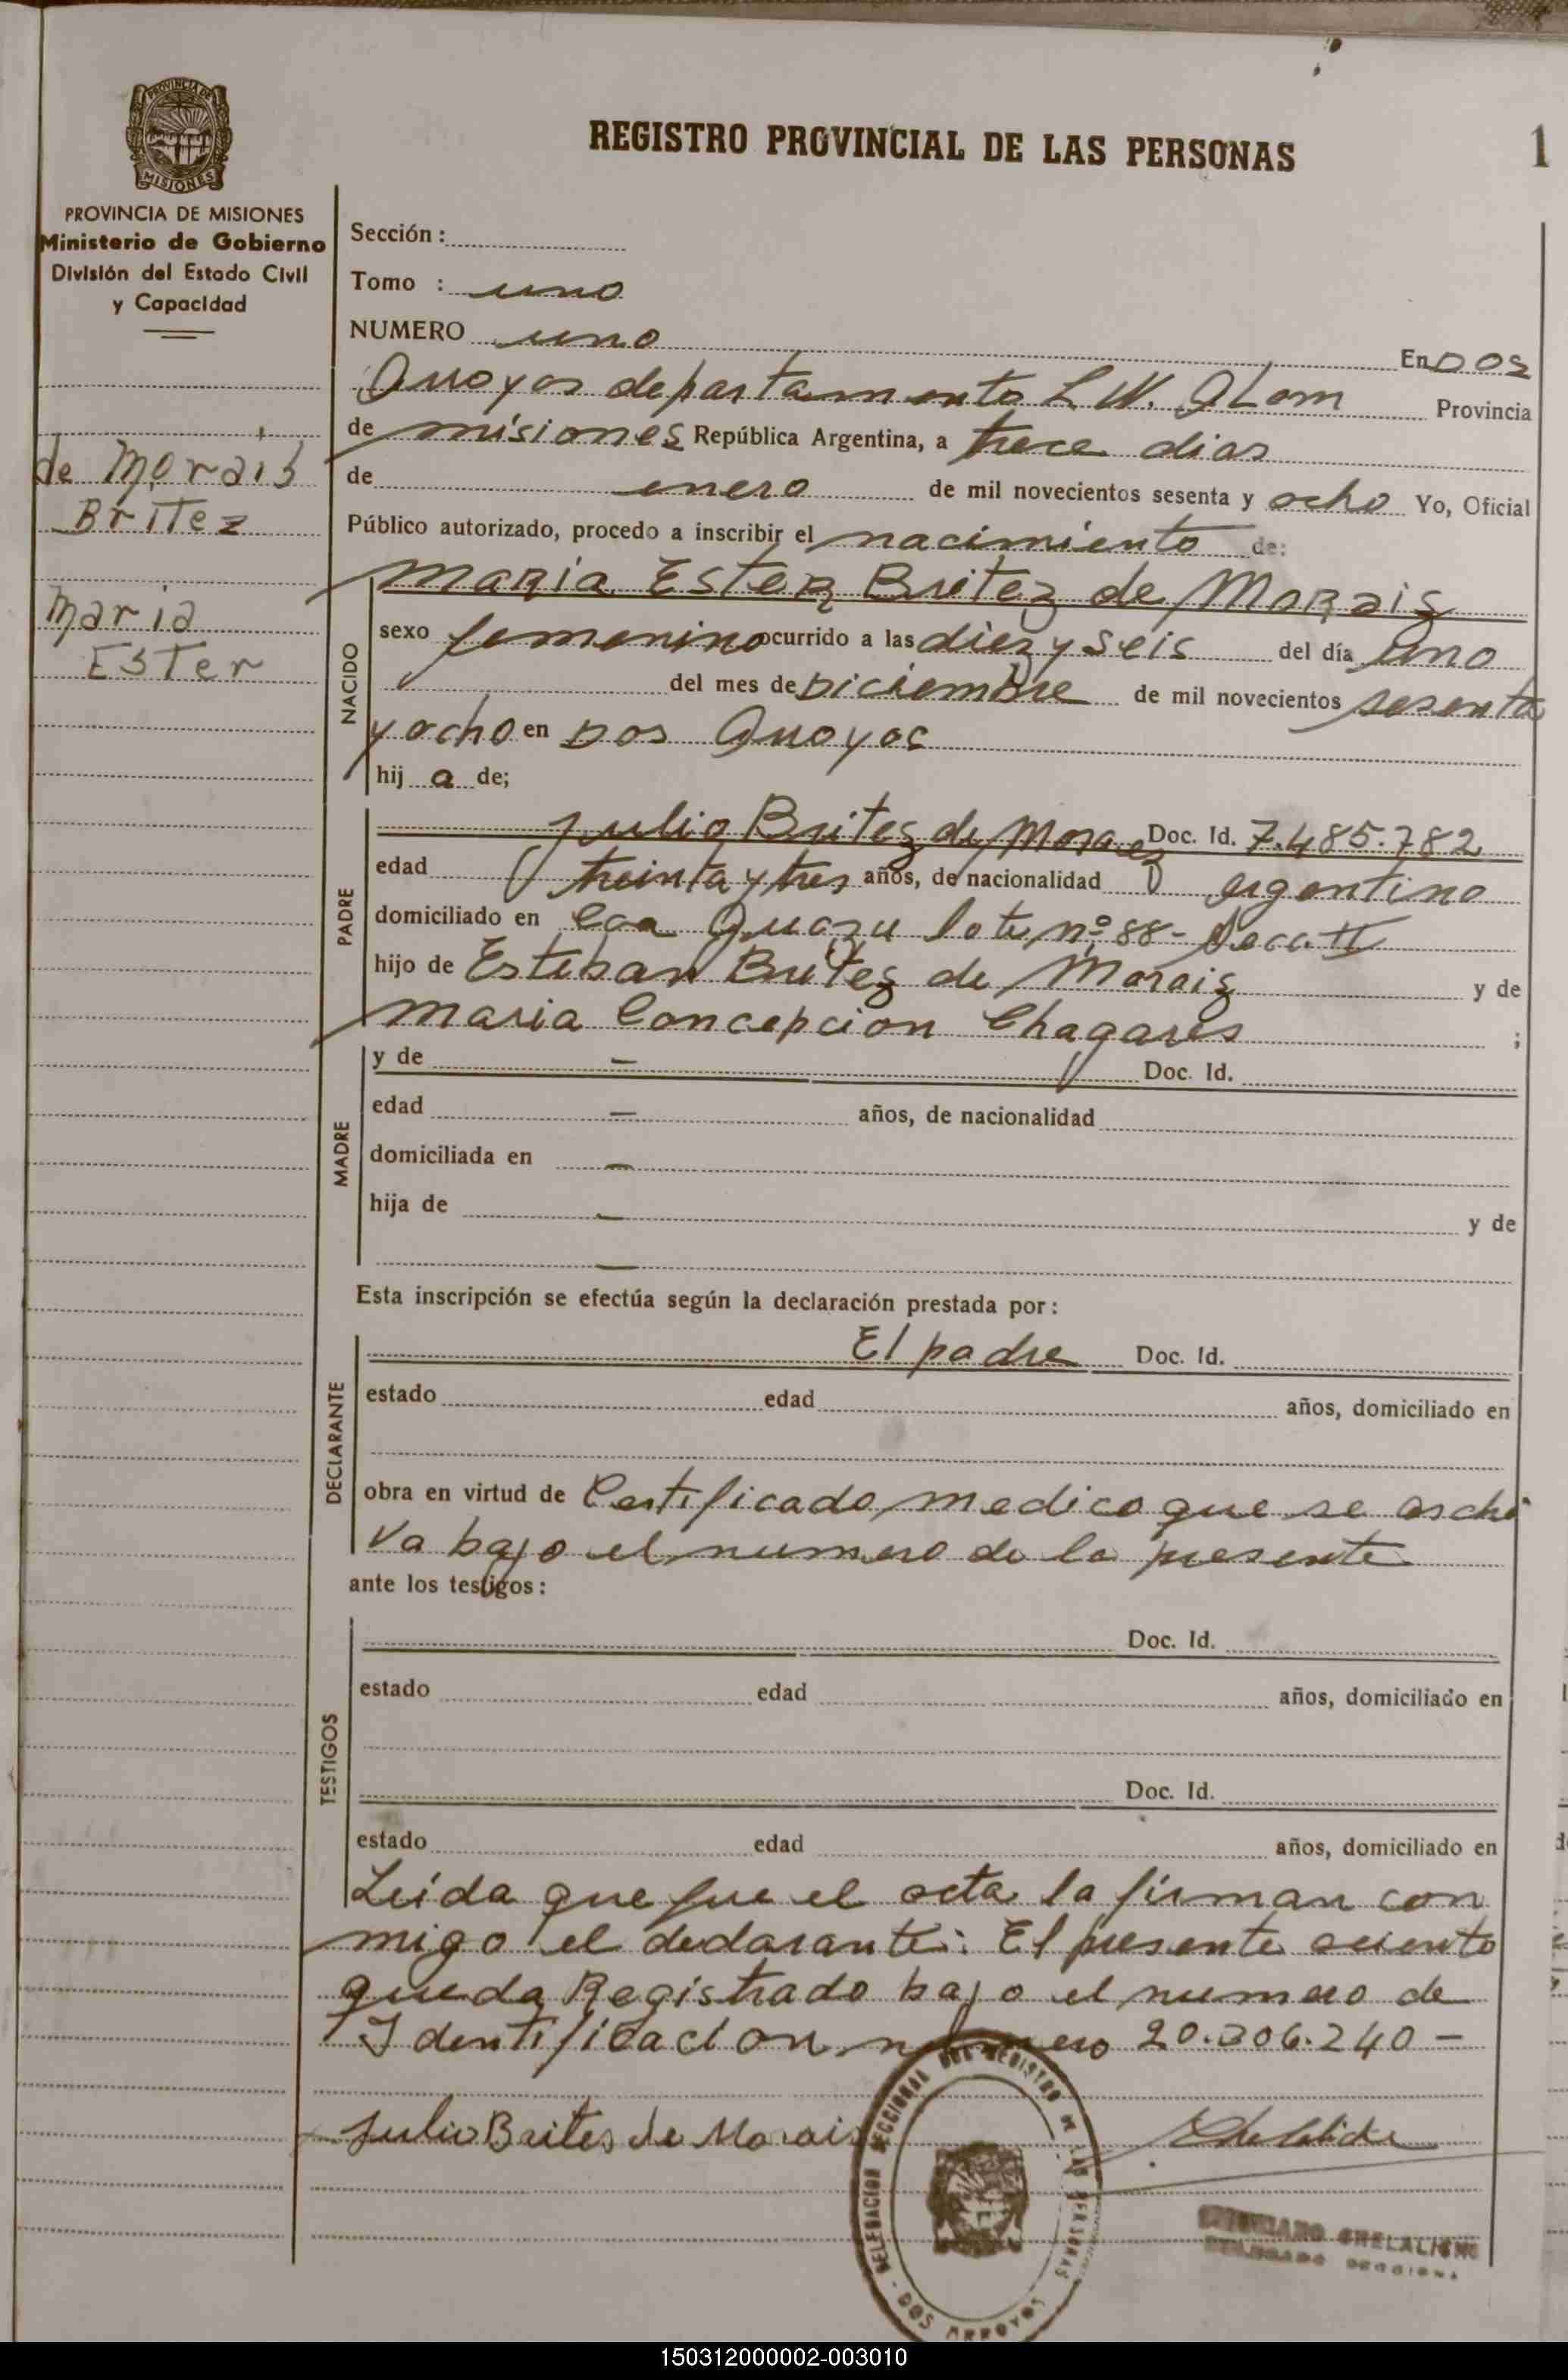 REGISTRO PROVINCIAL DE LAS PERSONAS
1
PROVINCIA DE
MISIONES
PROVINCIA DE MISIONES
Ministerio de Gobierno
División del Estado Civil
y Capacidad
de Morais
Britez
Maria
Ester
Sección :
Tomo : uno
NUMERO uno
En Dos
Arroyos departamento L. N. Alem Provincia
de misiones República Argentina, a trece dias
de enero de mil novecientos sesenta y ocho Yo, Oficial
Público autorizado, procedo a inscribir el nacimiento de:
Maria Ester Britez de Morais
NACIDO
sexo femenino ocurrido a las diez y seis del día uno
del mes de Diciembre de mil novecientos sesenta
y ocho en Dos Arroyos
hij a de;
PADRE
Julio Britez de Moraez Doc. Id. 7.485.782
edad treinta y tres años, de nacionalidad argentino
domiciliado en Caa Guazu lote nº 88- Secc. II
hijo de Esteban Britez de Moraiz y de
Maria Concepcion Chagares ;
MADRE
y de — Doc. Id.
edad — años, de nacionalidad
domiciliada en —
hija de — y de
—
Esta inscripción se efectúa según la declaración prestada por :
DECLARANTE
El padre Doc. Id.
estado edad años, domiciliado en
obra en virtud de Certificado medico que se archi
va bajo el numero de la presente
ante los testigos :
TESTIGOS
Doc. Id.
estado edad años, domiciliado en
Doc. Id.
estado edad años, domiciliado en
Leida que fue el acta la firman con
migo el declarante. El presente asiento
queda Registrado bajo el numero de
Identificacion numero 20.306.240 —
Julio Baites de Morais
DELEGACION SECCIONAL DEL REGISTRO DE LAS PERSONAS
DOS ARROYOS
150312000002-003010